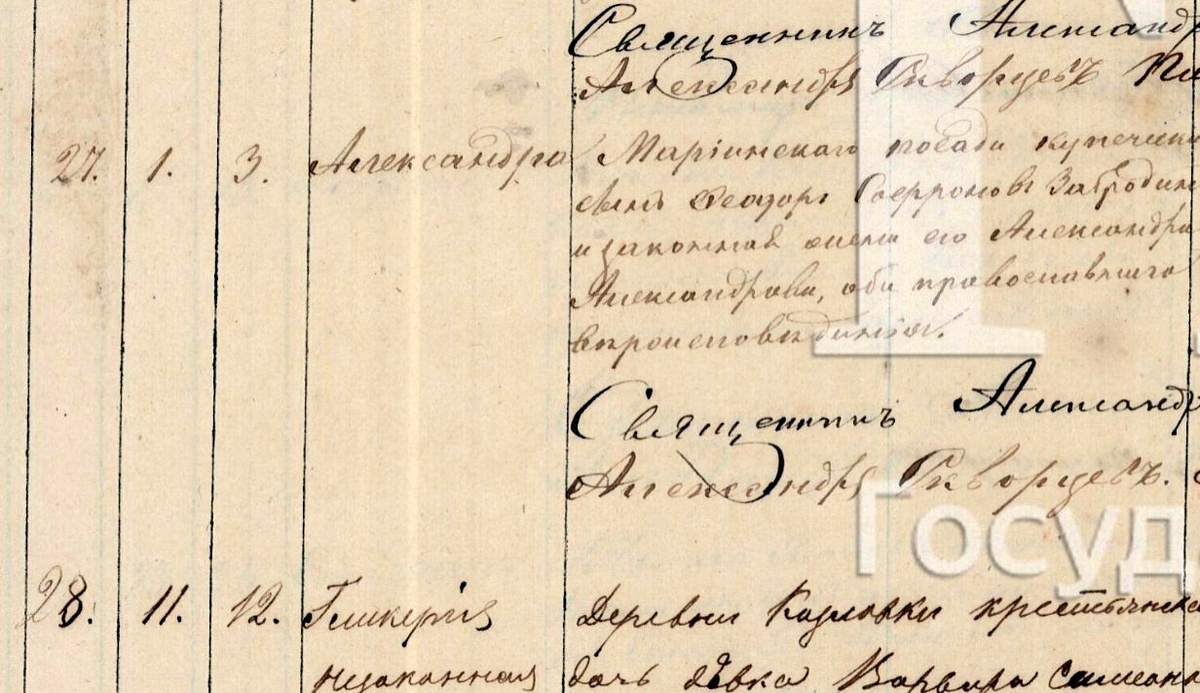 Священникъ Александр
Александръ Скворцевъ
27. 1. 3. Александра Маріинскаго посада купеческ
сынъ Ѳеодоръ Софроновъ Забродин
и законная жена его Александра
Александрова, оба православнаго
вѣроисповѣданія.
Священникъ Александр
Александръ Скворцевъ.
Госуд
28. 11. 12. Гликерія Деревни Козловки крестьянска
незаконная дочь дѣвка Варвара Симеон